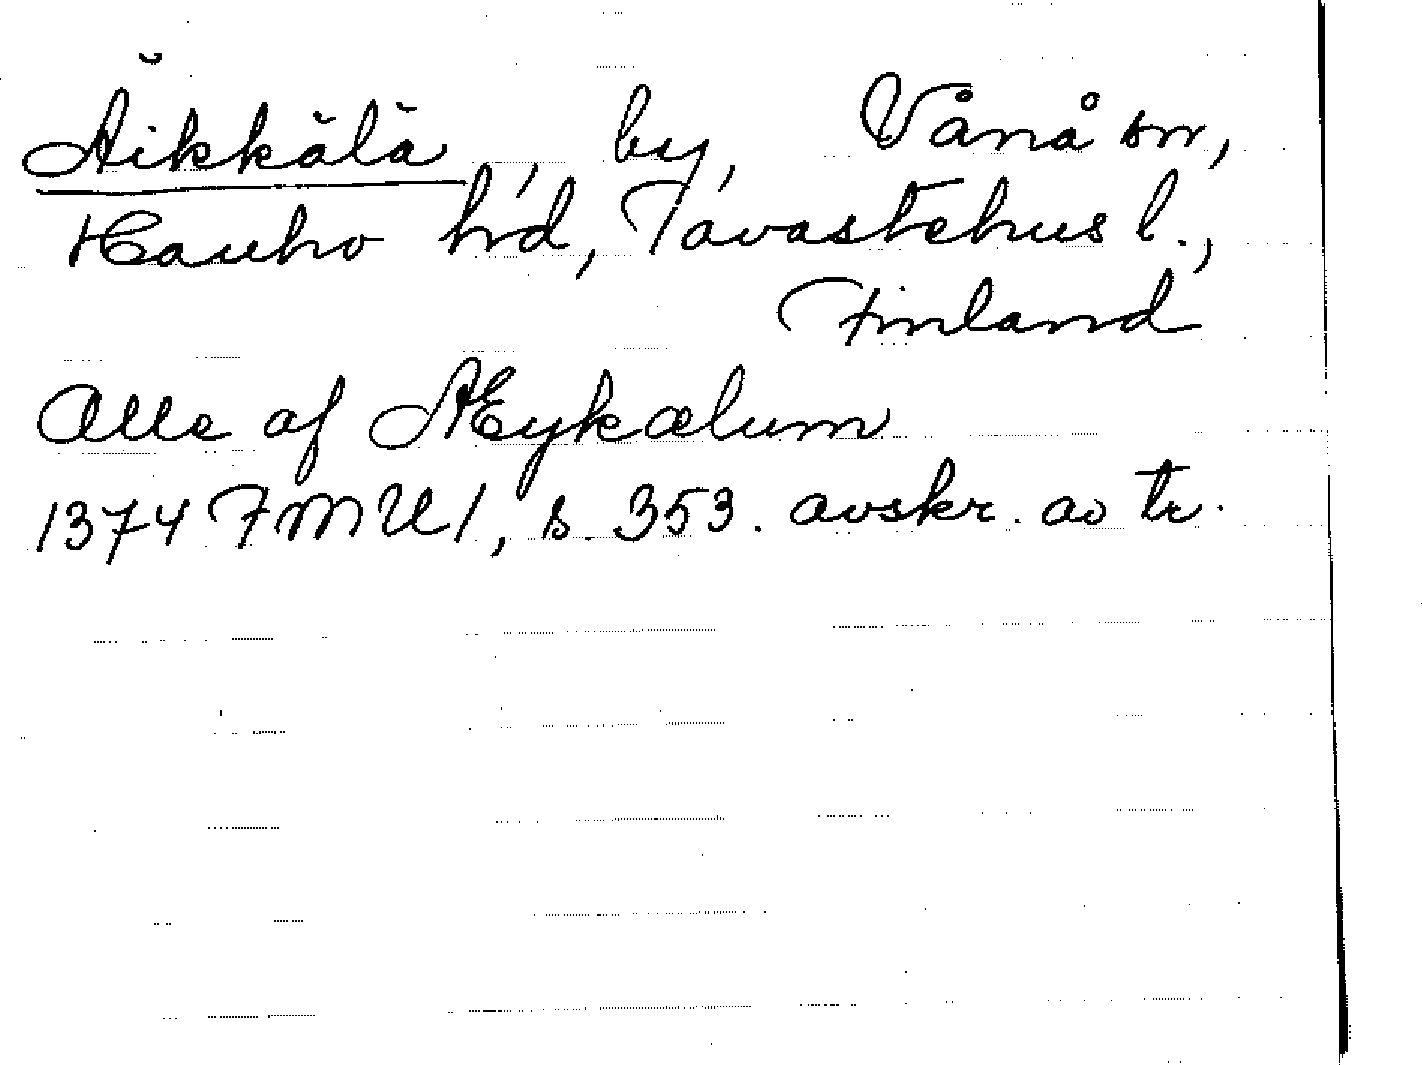 Äikkälä, by, Vånå sn,
Hauho hd, Tavastehus l.,
Finland
Olle af Æykælum
1374 FMU 1, s. 353. avskr. av tr.